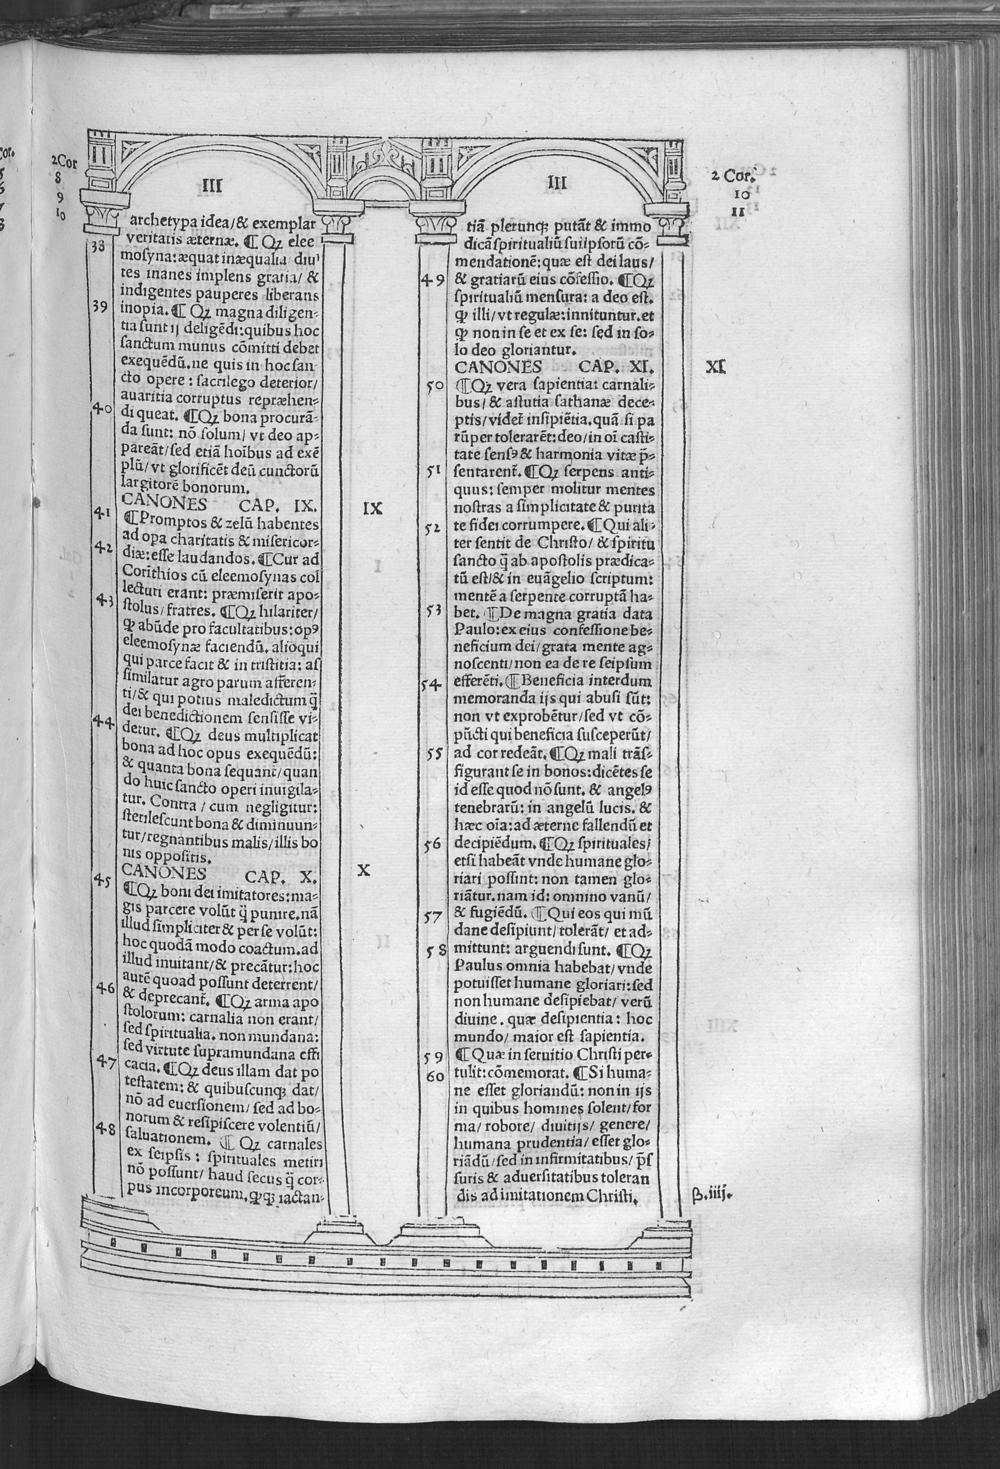 2 Cor
8
9
10
III
archetypa idea/& exemplar
38 veritatis æternæ. ¶ Qꝫ elee
mosyna: æquat inæqualia diui
tes inanes implens gratia/ &
indigentes pauperes liberans
39 inopia. ¶ Qꝫ magna diligen-
tia sunt ij deligēdi: quibus hoc
sanctum munus cōmitti debet
exequēdū. ne quis in hoc san
cto opere: sacrilego deterior/
auaritia corruptus repræhen-
40 di queat. ¶Qꝫ bona procurā-
da sunt: nō solum/ vt deo ap-
pareāt/ sed etiā hoībus ad exē
plū/ vt glorificēt deū cunctorū
largitorē bonorum.
CANONES CAP. IX. IX
41 ¶Promptos & zelū habentes
ad opa charitatis & misericor-
42 diæ: esse laudandos. ¶Cur ad
Corīthios cū eleemosynas col
lecturi erant: præmiserit apo-
43 stolus/ fratres. ¶Qꝫ hilariter/
ꝙ abūde pro facultatibus: opꝰ
eleemosynæ faciendū. alioqui
qui parce facit & in tristitia: as
similatur agro parum afferen-
ti/ & qui potius maledictum q̄
dei benedictionem sensisse vi-
44 detur. ¶Qꝫ deus multiplicat
bona ad hoc opus exequēdū:
& quanta bona sequant̄/ quan
do huic sancto operi inuigila-
tur. Contra / cum negligitur:
sterilescunt bona & diminuun-
tur/ regnantibus malis/ illis bo
nis oppositis.
CANONES CAP. X. X
45 ¶Qꝫ boni dei imitatores: ma-
gis parcere volūt q̄ punire. nā
illud simpliciter & per se volūt:
hoc quodā modo coactum. ad
illud inuitant/ & precātur: hoc
autē quoad possunt deterrent/
46 & deprecant̄. ¶Qꝫ arma apo
stolorum: carnalia non erant/
sed spiritualia. non mundana:
sed virtute supramundana effi
47 cacia. ¶Qꝫ deus illam dat po
testatem: & quibuscunqꝫ dat/
nō ad euersionem/ sed ad bo-
norum & resipiscere volentiū/
48 saluationem. ¶ Qꝫ carnales
ex seipsis: spirituales metiri
nō possunt/ haud secus q̄ cor-
pus incorporeum. ꝙqꝫ iactan-
2 Cor.
10
11
III
tiā plerunqꝫ putāt & immo
dicā spiritualiū suiipsorū cō-
mendationē: quæ est dei laus/
49 & gratiarū eius cōfessio. ¶Qꝫ
spiritualiū mensura: a deo est.
ꝙ illi/ vt regulæ: innituntur. et
ꝙ non in se et ex se: sed in so-
lo deo gloriantur.
CANONES CAP. XI. XI
50 ¶Qꝫ vera sapientia: carnali-
bus/ & astutia sathanæ dece-
ptis/ videt̄ insipiētia. quā si pa
rūper tolerarēt: deo/ in oī casti-
tate sensꝰ & harmonia vitæ p̄-
51 sentarent̄. ¶Qꝫ serpens anti-
quus: semper molitur mentes
nostras a simplicitate & purita
52 te fidei corrumpere. ¶Qui ali-
ter sentit de Christo/ & spiritu
sancto q̄ ab apostolis prædica-
tū est/ & in euāgelio scriptum:
mentē a serpente corruptā ha-
53 bet. ¶De magna gratia data
Paulo: ex eius confessione be-
neficium dei/ grata mente ag-
noscenti/ non ea de re seipsum
54 efferēti. ¶Beneficia interdum
memoranda ijs qui abusi sūt:
non vt exprobētur/ sed vt cō-
pūcti qui beneficia susceperūt/
55 ad cor redeāt. ¶Qꝫ mali trās-
figurant se in bonos: dicētes se
id esse quod nō sunt. & angelꝰ
tenebrarū: in angelū lucis. &
hæc oīa: ad æterne fallendū et
56 decipiēdum. ¶Qꝫ spirituales/
etsi habeāt vnde humane glo-
riari possint: non tamen glo-
riātur. nam id: omnino vanū/
57 & fugiēdū. ¶Qui eos qui mū
dane desipiunt/ tolerāt/ et ad-
58 mittunt: arguendi sunt. ¶Qꝫ
Paulus omnia habebat/ vnde
potuisset humane gloriari: sed
non humane desipiebat/ verū
diuine. quæ desipientia: hoc
mundo/ maior est sapientia.
59 ¶Quæ in seruitio Christi per-
60 tulit: cōmemorat. ¶Si huma-
ne esset gloriandū: non in ijs
in quibus homines solent/ for
ma/ robore/ diuitijs/ genere/
humana prudentia/ esset glo-
riādū/ sed in infirmitatibus/ p̄s
suris & aduersitatibus toleran
dis ad imitationem Christi.
β.iiij.